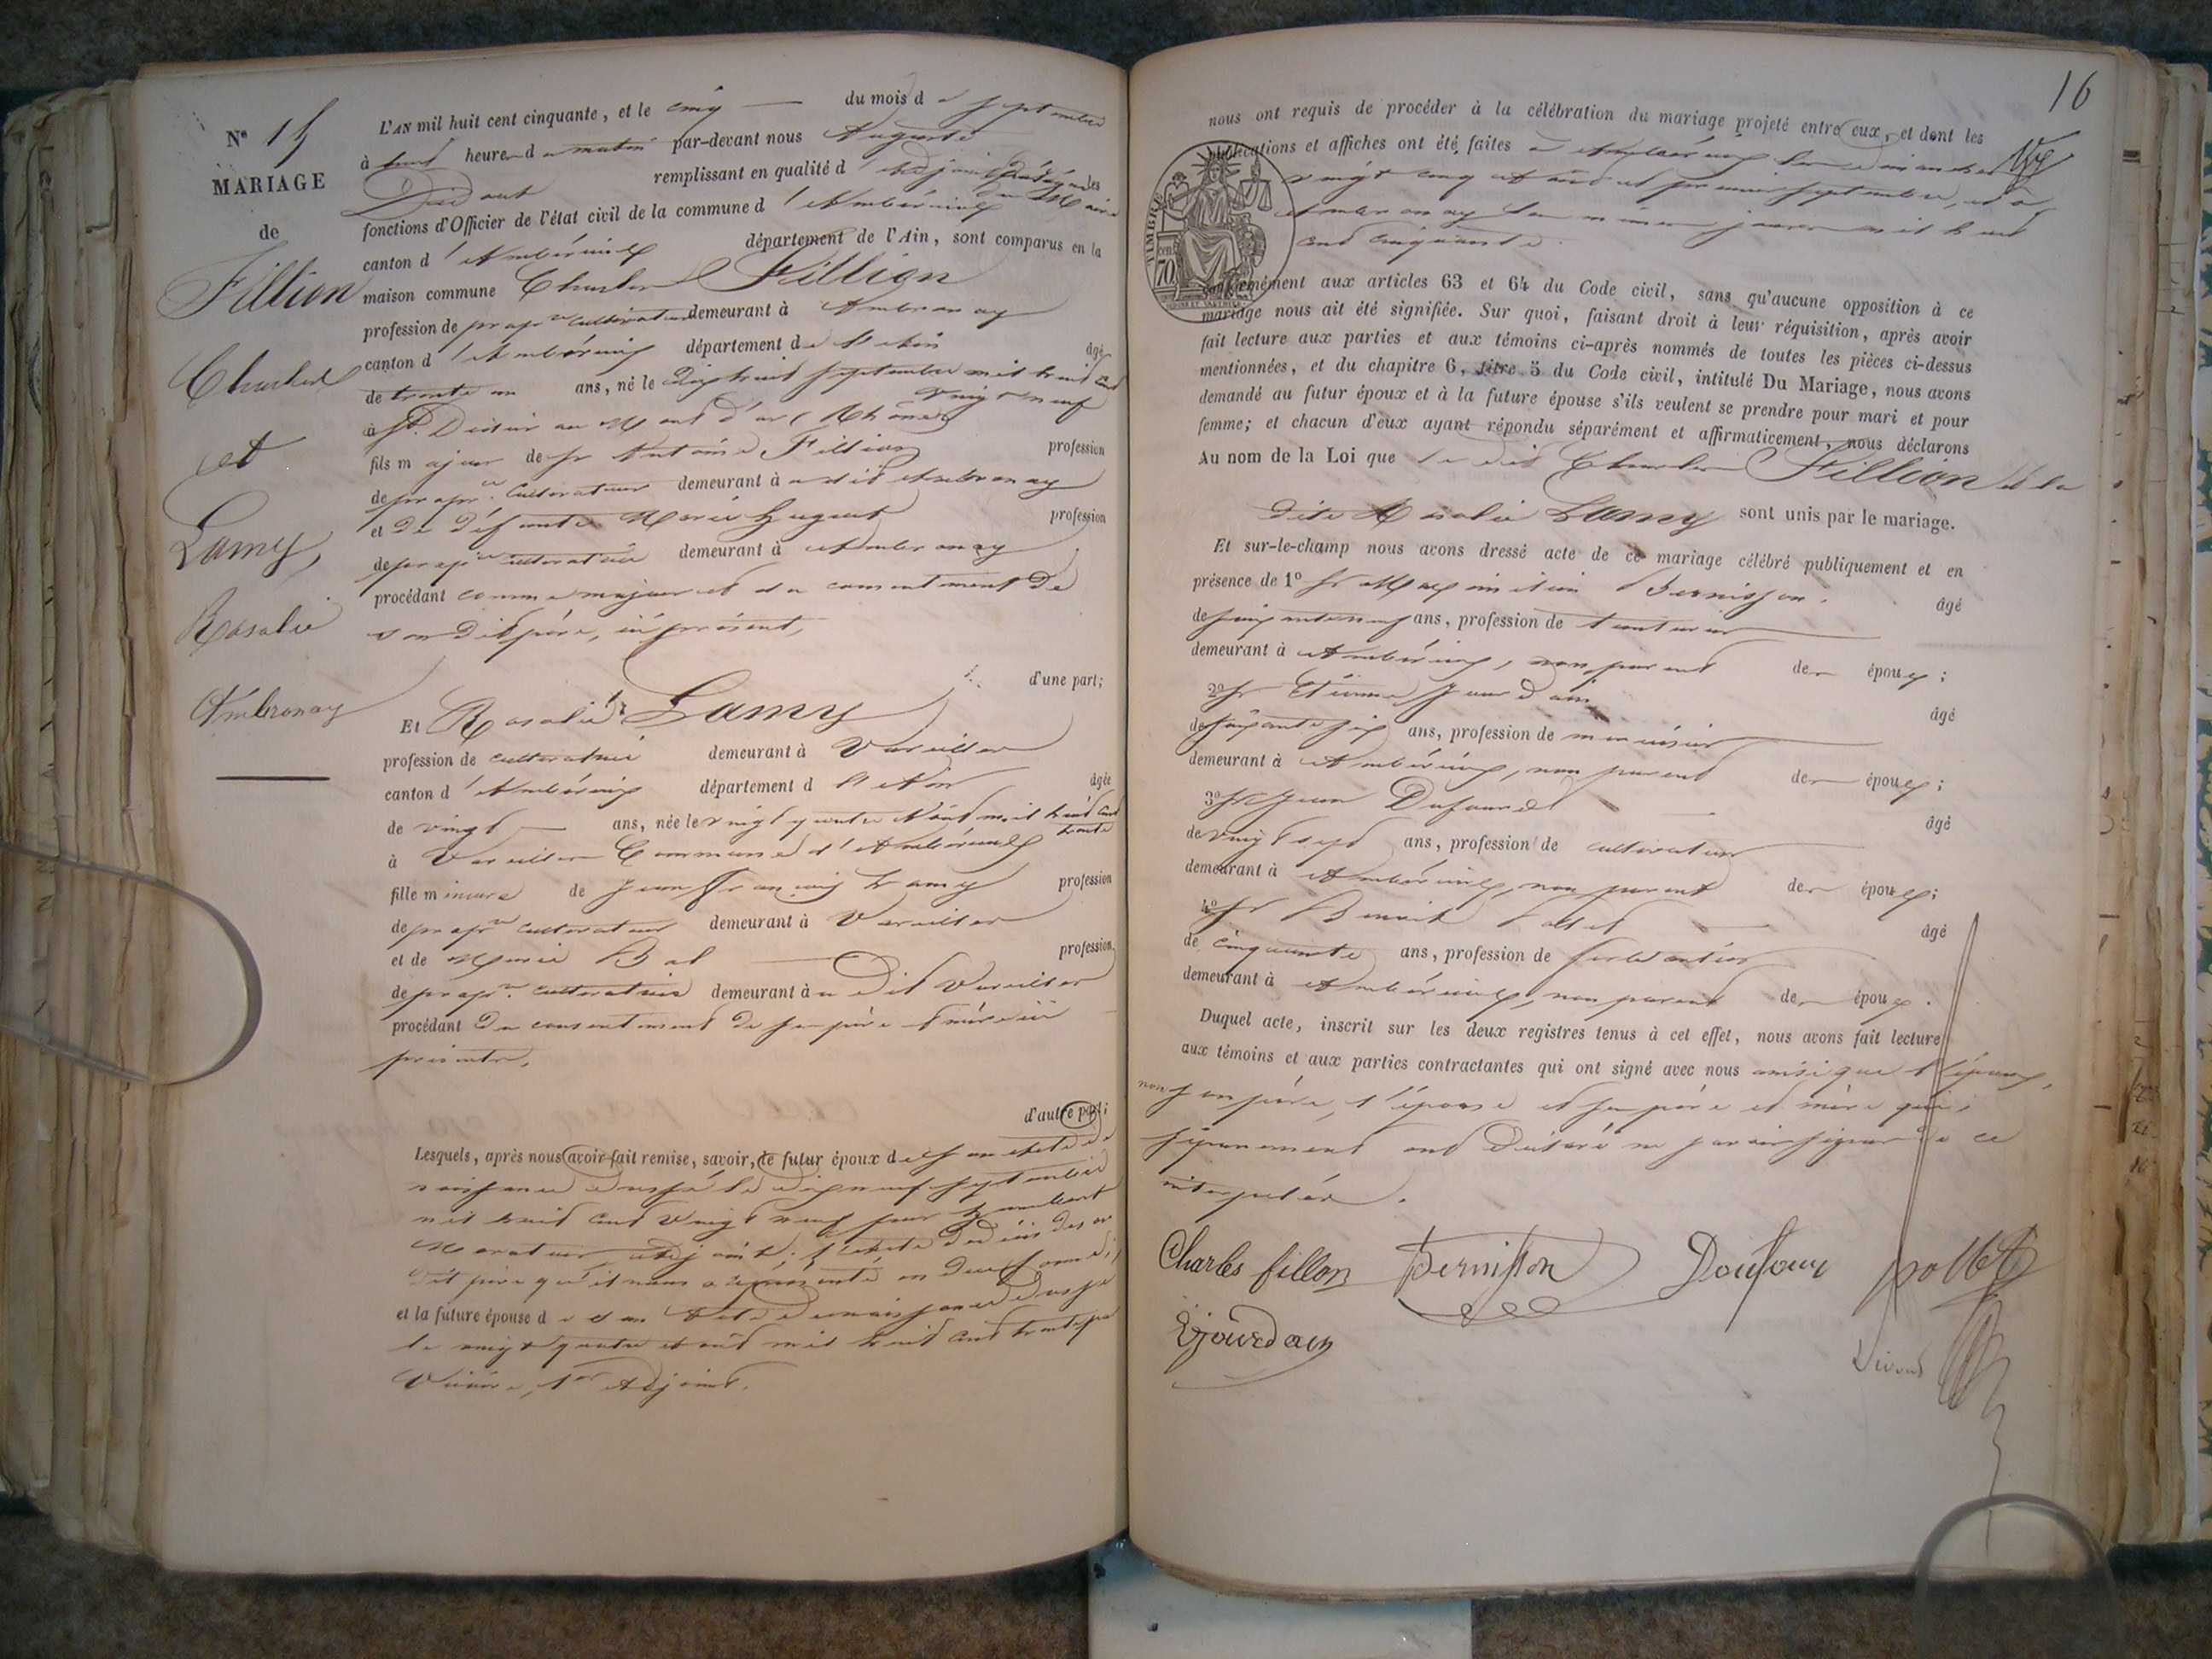 Nº 15
MARIAGE
de
Fillion
Charles
et
Lamy,
Rosalie
Ambronay
L'AN mil huit cent cinquante, et le cinq du mois de septembre
à huit heures du matin par-devant nous Auguste
remplissant en qualité d'adjoint
fonctions d'Officier de l'état civil de la commune d'Ambérieux
canton d'Ambérieux département de l'Ain, sont comparus en la
maison commune Charles Fillion
profession de propre cultivateur demeurant à Ambronay
canton d'Ambérieux département de l'Ain âgé
de trente un ans, né le dix huit septembre mil huit cent
vingt neuf
à St. Didier au Mont d'or (Rhône)
fils majeur de sr Antoine Fillion profession
de propre cultivateur demeurant à udit Ambronay
et de défunte Marie huguet profession
de propre cultivatrice demeurant à Ambronay
procédant comme majeur et du consentement de
son dit père, ici présent,
d'une part;
Et Rosalie Lamy
profession de cultivatrice demeurant à Vareilles
canton d'Ambérieux département de l'Ain âgée
de vingt ans, née le vingt quatre Août mil huit cent
trente
à Vareilles Commune d'Ambérieux
fille mineure de Jean François Lamy profession
de propre cultivateur demeurant à Vareilles
et de Marie Bal profession
de propre cultivatrice demeurant à udit Vareilles
procédant du consentement de ses père et mère ici
présents,
d'autre part;
Lesquels, après nous avoir fait remise, savoir, le futur époux de son acte de
naissance dressé le dix neuf septembre
mil huit cent vingt neuf par
adjoint; l'acte de décès de sa
mère
et la future épouse de son acte de naissance dressé
le vingt quatre Août mil huit cent trente par
1er Adjoint.
16
nous ont requis de procéder à la célébration du mariage projeté entre eux, et dont les
publications et affiches ont été faites à Ambérieux les dimanches
vingt cinq Août et premier septembre, et à
Ambronay les mêmes jours mil huit
cent cinquante.
TIMBRE
70
conformément aux articles 63 et 64 du Code civil, sans qu'aucune opposition à ce
mariage nous ait été signifiée. Sur quoi, faisant droit à leur réquisition, après avoir
fait lecture aux parties et aux témoins ci-après nommés de toutes les pièces ci-dessus
mentionnées, et du chapitre 6, titre 5 du Code civil, intitulé Du Mariage, nous avons
demandé au futur époux et à la future épouse s'ils veulent se prendre pour mari et pour
femme; et chacun d'eux ayant répondu séparément et affirmativement, nous déclarons
Au nom de la Loi que le dit Charles Fillion et la
dite Rosalie Lamy sont unis par le mariage.
Et sur-le-champ nous avons dressé acte de ce mariage célébré publiquement et en
présence de 1º sr Maximilien Bernisson. âgé
de ans, profession de teinturier
demeurant à Ambérieux, non parent des époux;
2º sr Etienne Jourdain âgé
de soixante six ans, profession de menuisier
demeurant à Ambérieux, non parent des époux;
3º sr Jean Dufour âgé
de vingt sept ans, profession de cultivateur
demeurant à Ambérieux, non parent des époux;
4º sr Benoit Pollet âgé
de cinquante ans, profession de ferblantier
demeurant à Ambérieux, non parent des époux.
Duquel acte, inscrit sur les deux registres tenus à cet effet, nous avons fait lecture
aux témoins et aux parties contractantes qui ont signé avec nous ainsi que l'époux,
non son père, l'épouse et ses père et mère qui,
séparement ont déclaré ne savoir signer de ce
interpelés.
Charles fillon Bernisson Doufour pollet
E Jourdain